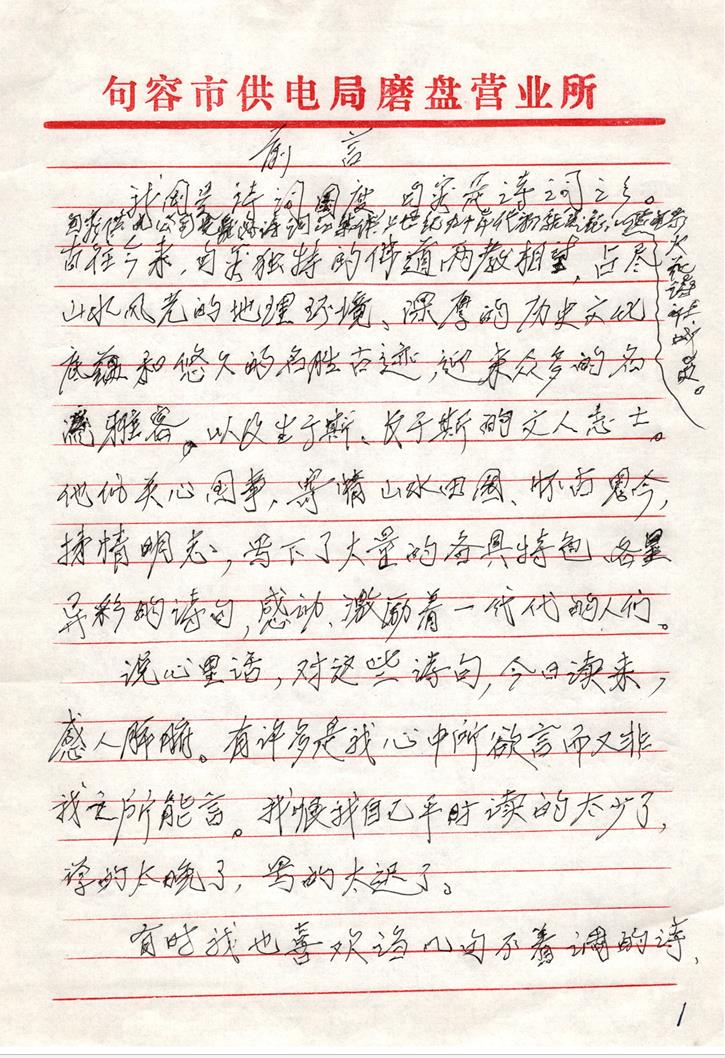 句容市供电局磨盘营业所
前言
我国是诗词国度,句容是诗词之乡。
古往今来,句容独特的佛道两教相望,占尽
山水风光的地理环境、深厚的历史文化
底蕴和悠久的名胜古迹,迎来众多的名
流雅客,以及生于斯、长于斯的文人志士。
他们关心国事,寄情山水田园、怀古思今,
抒情明志,写下了大量的各具特色、各呈
异彩的诗句,感动、激励着一代代的人们。
说心里话,对这些诗句,今日读来,
感人肺腑。有许多是我心中所欲言而又非
我之所能言。我恨我自己平时读的太少了,
学的太晚了,写的太迟了。
有时我也喜欢诌几句不着调的诗、
1